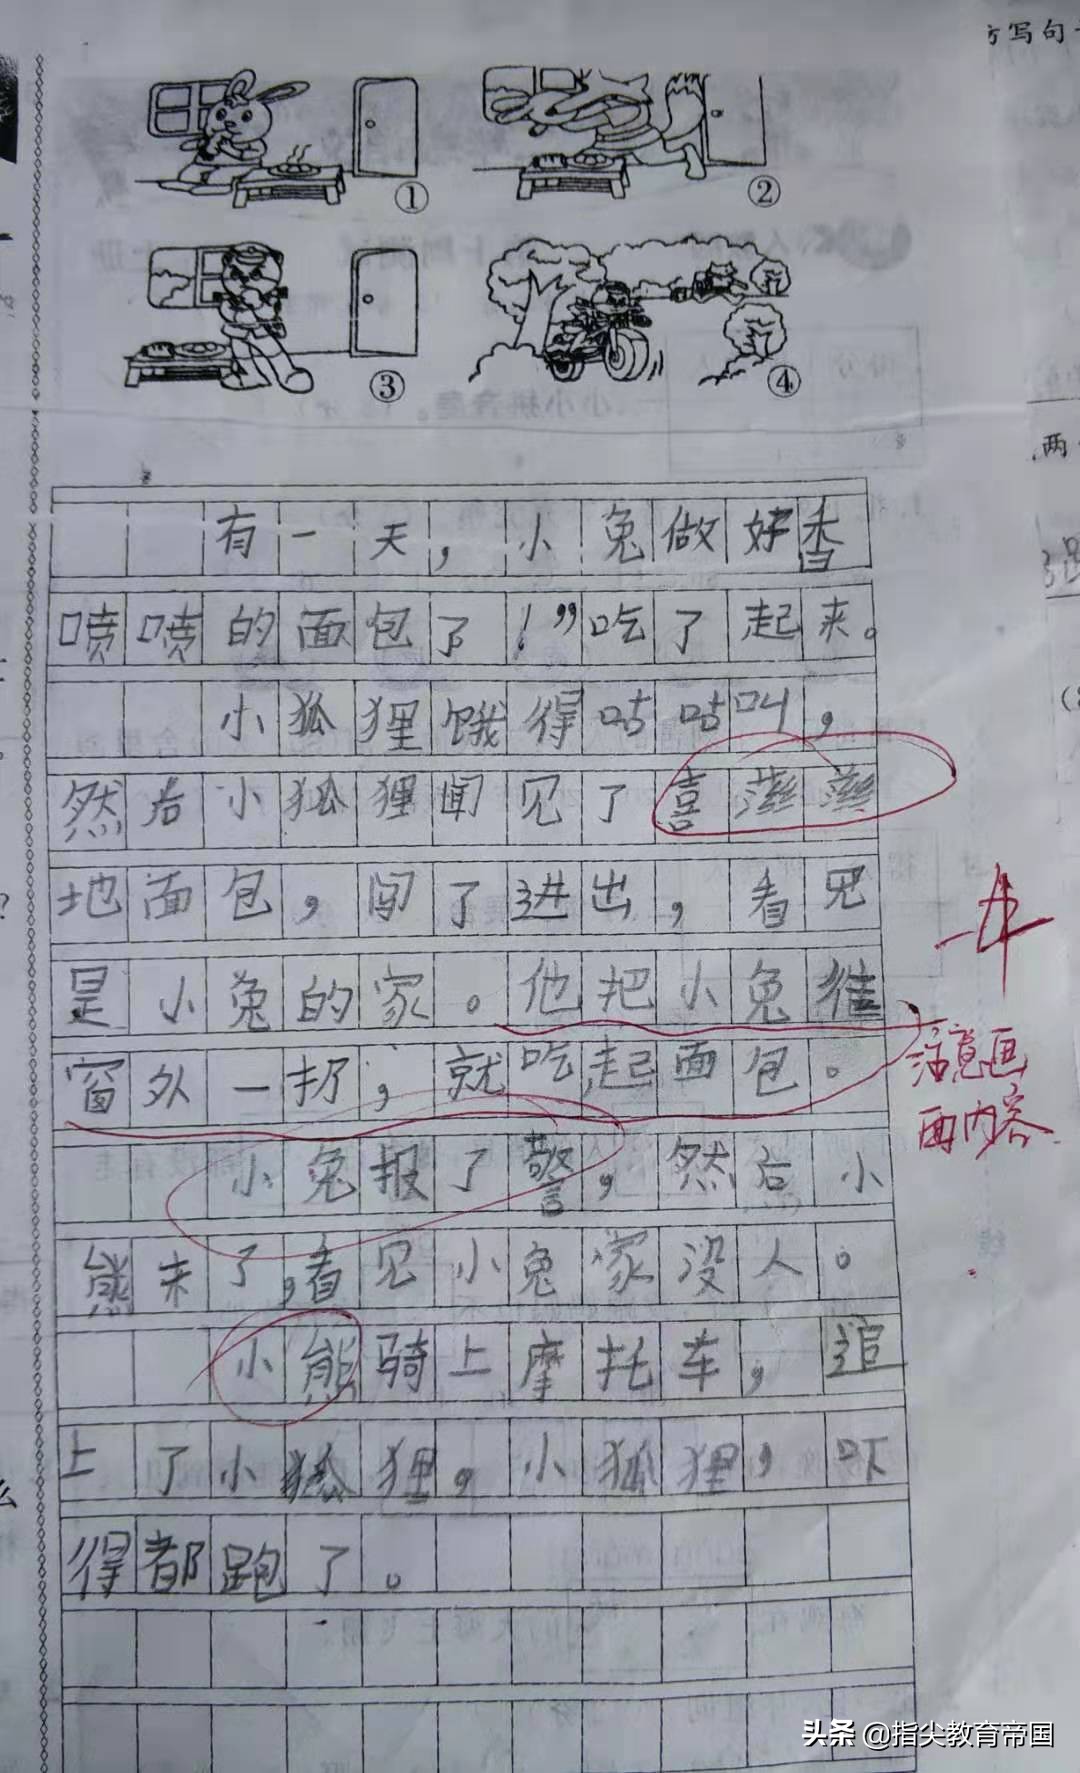 方写句
①
②
③
④
两
有一天，小兔做好香
喷喷的面包了！”吃了起来。
小狐狸饿得咕咕叫，
然后小狐狸闻见了喜滋滋
地面包，闯了进出，看见
是小兔的家。他把小兔往
窗外一扔，就吃起面包。
小兔报了警，然后小
熊来了，看见小兔家没人。
小熊骑上摩托车，追
上了小狐狸，小狐狸，吓
得都跑了。
-4
注意画
面内容
头条 @指尖教育帝国